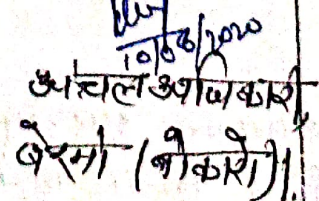 10/06/2020
अंचल अधिकारी,
बेरमो (बोकारो)।